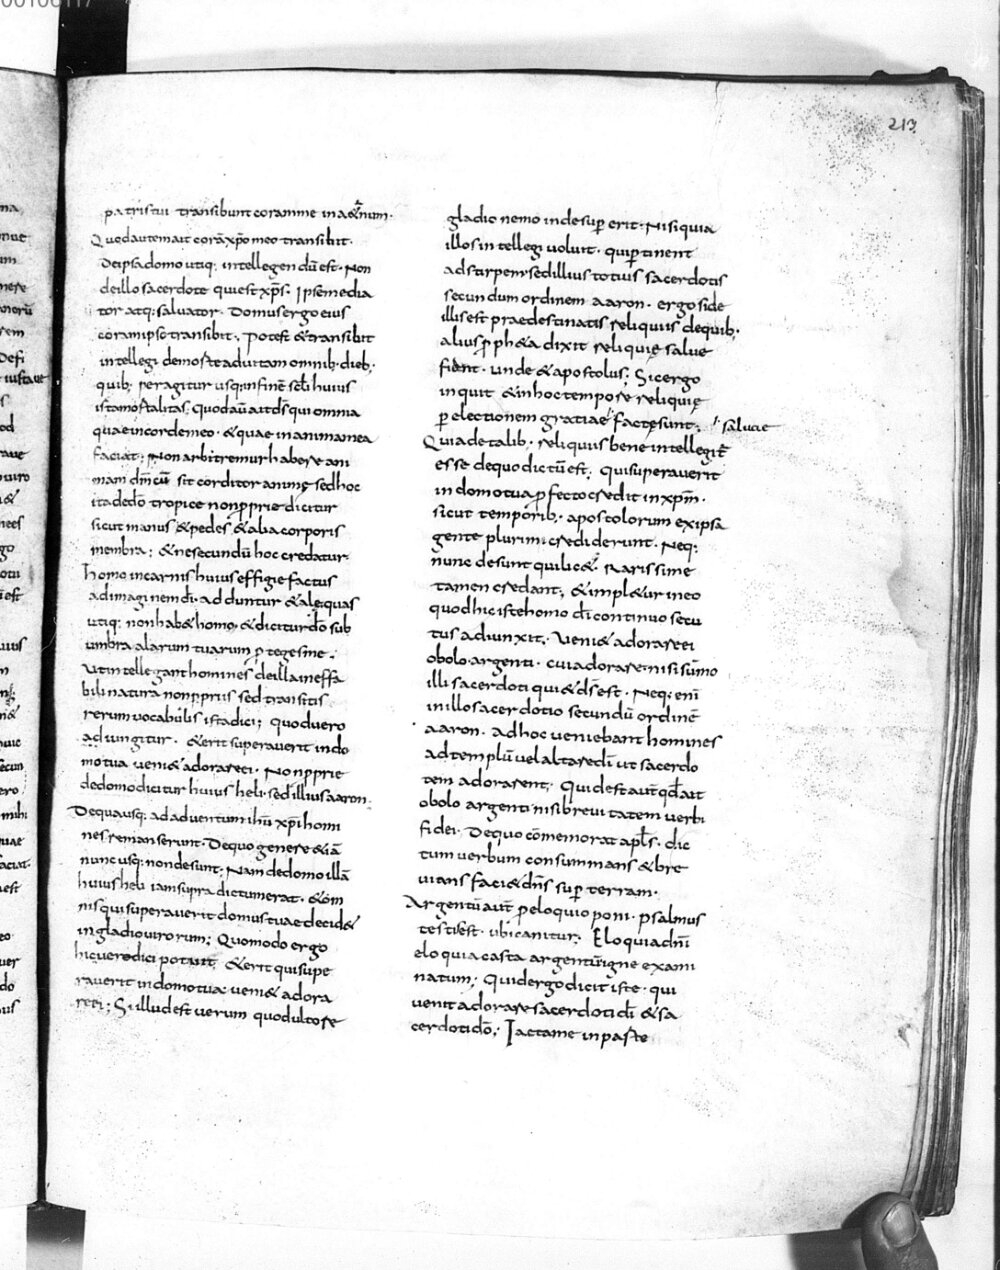 213
patris tui transibunt coram me in aet̄ernum·
Quod autem ait corā xp̄o meo transibit·
de ipsa domo utiq; intellegendū est· Non
de illo sacerdote qui est xp̄s· Ipse media
tor atq; salvator· Domus ergo eius
coram ipso transibit; Potest & transibit
intellegi de morte ad vitam omnib; dieb;
quib; peragitur usq; in finē scl̄i huius
ista mortalitas; Quod aū ait ds̄ qui omnia
quae in corde meo· & quae in anima mea
faciat; Non arbitremur habere ani
mam dm̄ cū sit conditor animę sed hoc
ita de dō tropice non proprie dicitur
sicut manus & pedes & alia corporis
membra; & ne secundū hoc credatur
homo in carnis huius effigie factus
ad imaginem dī· adduntur & alę quas
utiq; non hab& homo, & dicitur dō sub
umbra alarum tuarum protege me·
Ut intellegant homines de illa ineffa
bili natura non propriis sed translatis
rerum vocabulis ista dici; quod vero
adiungitur· & erit qui superaverit in do
mo tua veni& adorare ei· Non proprie
de domo dicitur huius heli· sed illius aaron·
De qua usq; ad adventum ihū xp̄i homi
nes remanserunt· De quo genere &iā
nunc usq; non desunt; Nam de domo illā
huius heli iam supra dictum erat· & om
nis qui superaverit domus tuae decid&
in gladio virorum; Quomodo ergo
hic vere dici potuit & erit qui supe
raverit in domo tua· veni& adora
re ei; Si illud est verum quod ultore
gladio nemo inde supererit· Nisi quia
illos intellegi voluit· qui pertinent
ad stirpem sed illius totius sacerdotis
secundum ordinem aaron· ergo si de
illis est praedestinatis reliquiis de quib;
alius proph&a dixit reliquię salve
fient· unde & apostolus; Sic ergo
inquit & in hoc tempore reliquię
per electionem gratiae factę sunt; salvae
Quia de talib; reliquiis bene intellegit̄
esse de quo dictū est; qui superaverit
in domo tua profecto credit in xpm̄·
sicut temporib; apostolorum ex ipsa
gente plurimi crediderunt· Neq;
nunc desunt qui lic& rarissime
tamen credant; & impl&ur in eo
quod hic iste homo dī continuo secu
tus adiunxit· Veni& adorare ei
obolo argenti· cui adorare nisi sūmo
illi sacerdoti qui & ds̄ est· Neq; enī
in illo sacerdotio secundū ordinē
aaron· ad hoc veniebant homines
ad templū vel altare dī ut sacerdo
tem adorarent; Quid est aūt qd̄ ait
obolo argenti nisi brevitatem verbi
fidei· De quo cōmemorat apl̄s· dic
tum verbum consummans & bre
vians faci& dn̄s super terram·
Argentū aūt pro eloquio poni· psalmus
testis est· ubi canitur; Eloquia dn̄i
eloquia casta argentū igne exami
natum; Quid ergo dicit iste· qui
venit adorare sacerdoti dī & sa
cerdoti dō; Iacta me in parte